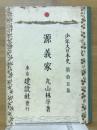 少年大日本史 第十五巻
源義家
丸山林平著
東京 建設社 發行